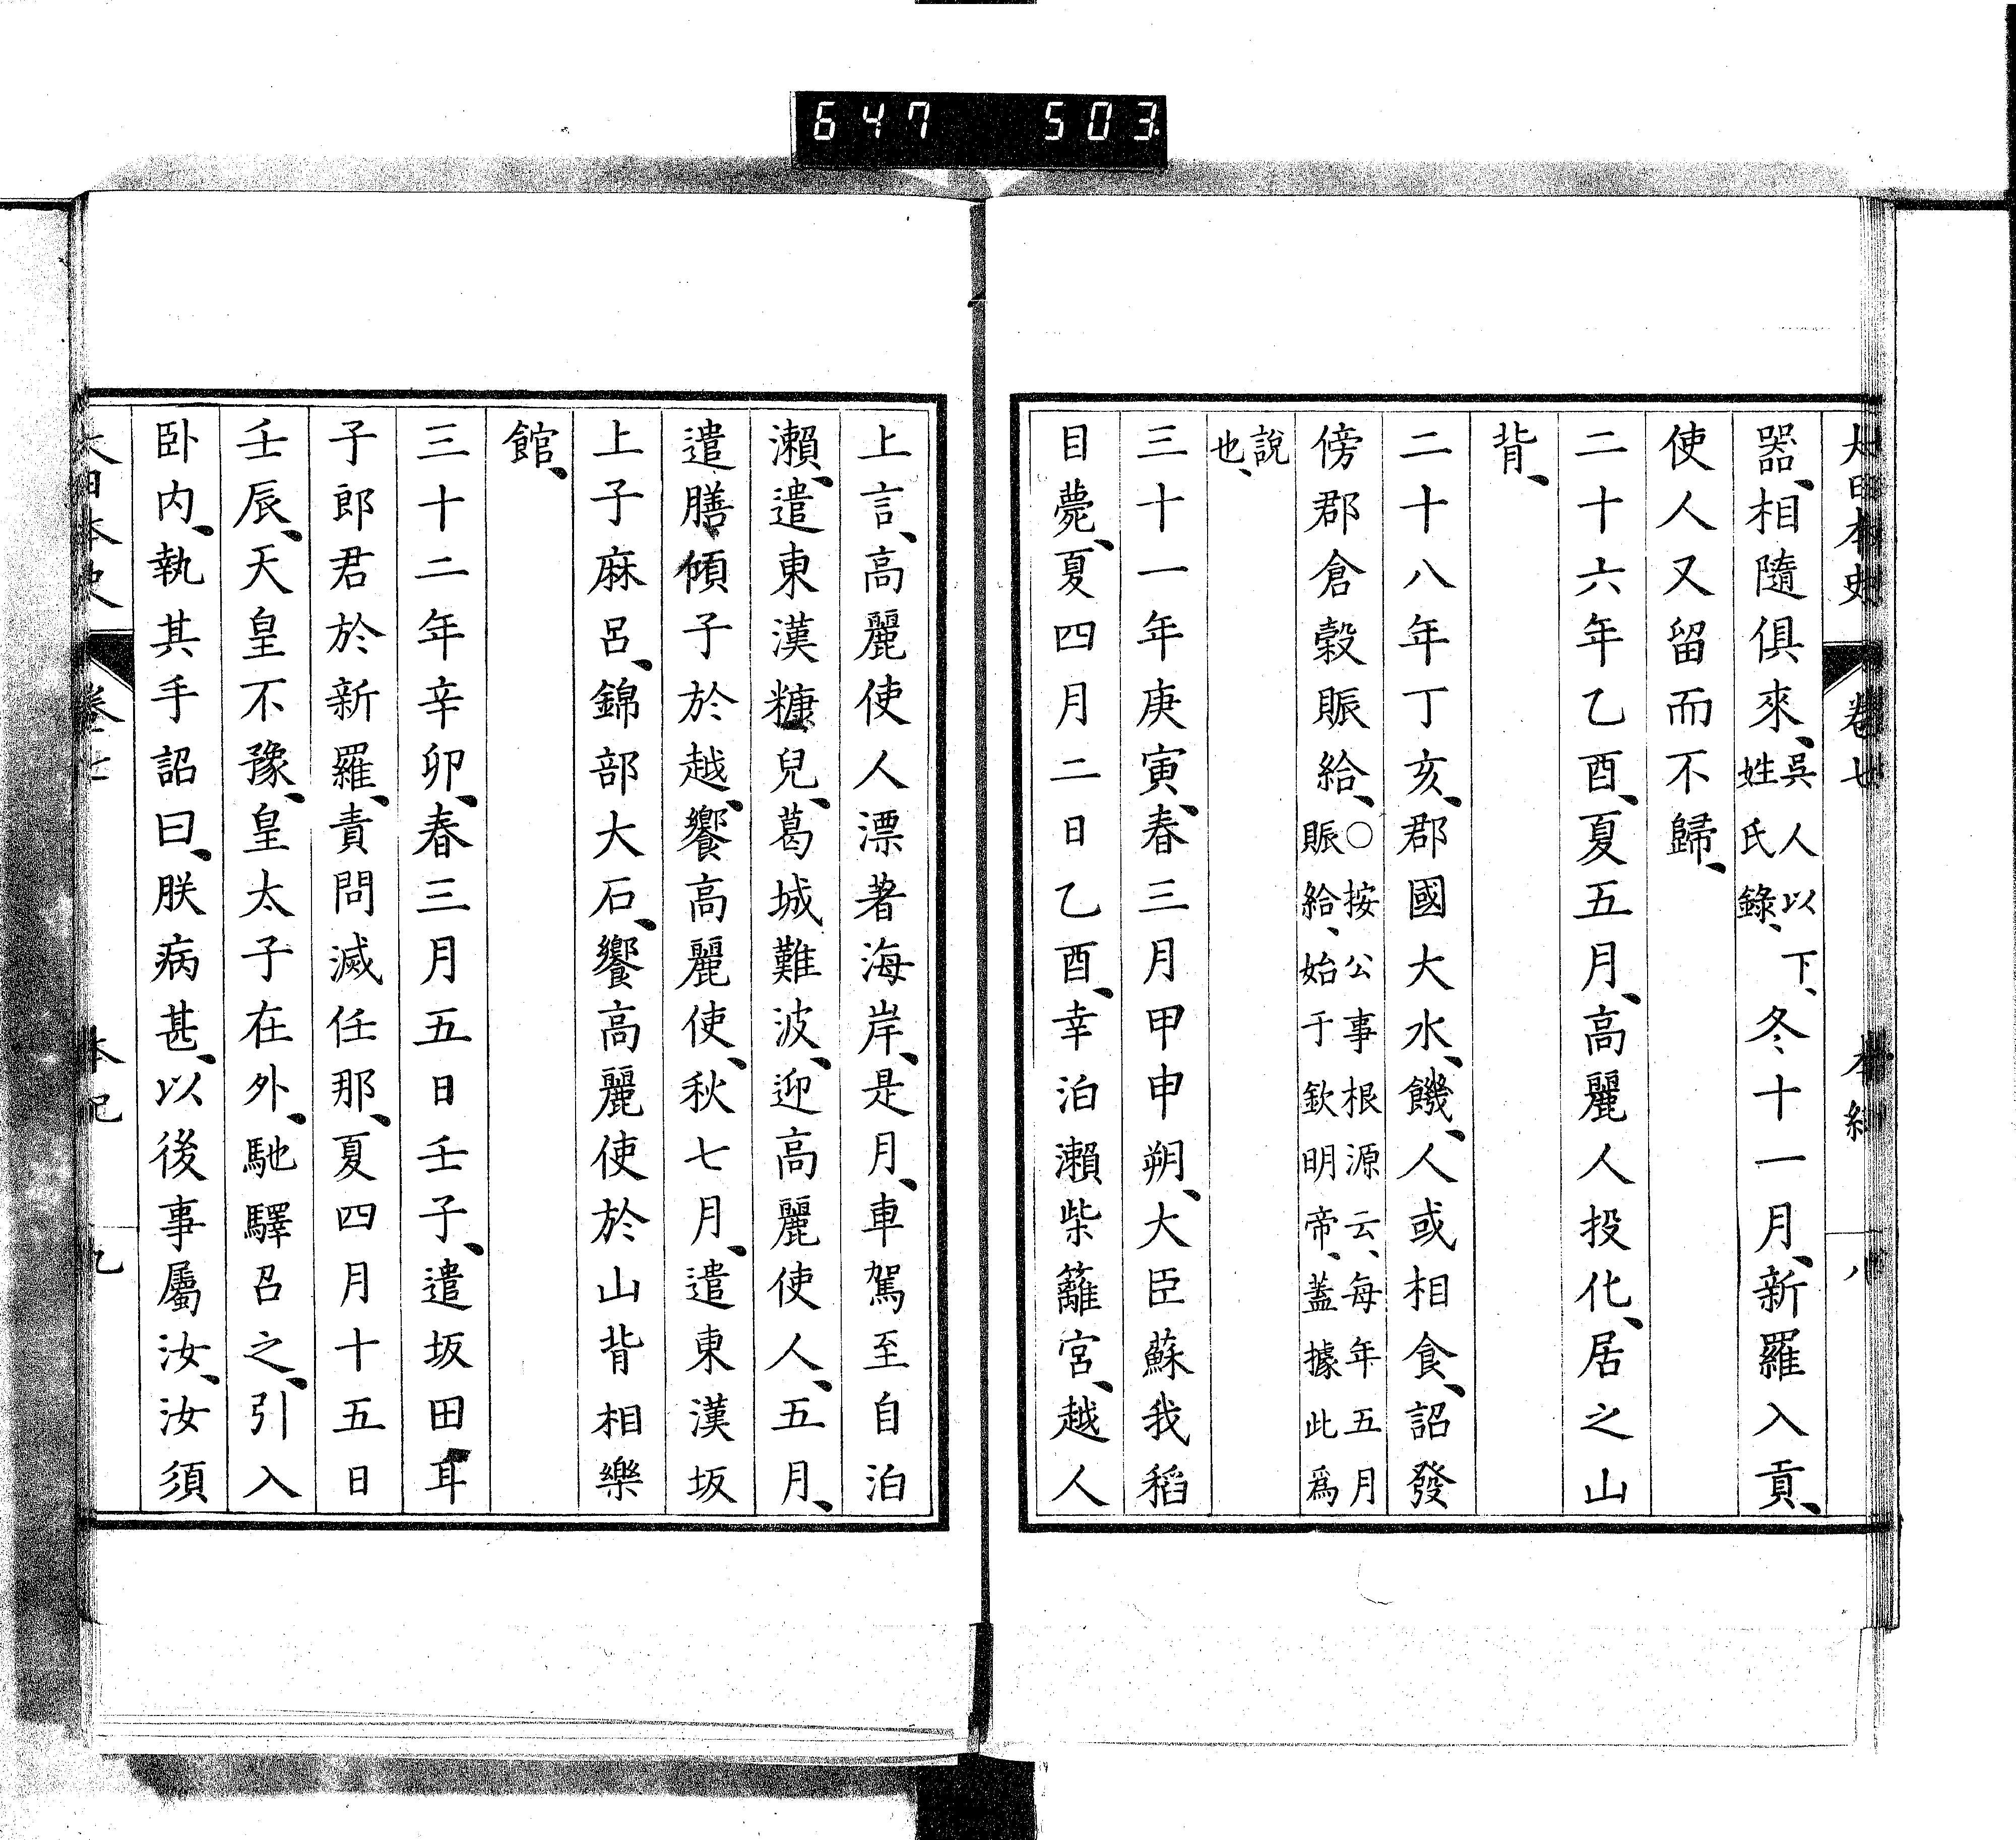 647 503
大日本史 卷七 本紀 八
器、相隨俱來、吳人以下、姓氏錄、冬十一月、新羅入貢、
使人又留而不歸、
二十六年乙酉、夏五月、高麗人投化、居之山
背、
二十八年丁亥、郡國大水、饑、人或相食、詔發
傍郡倉穀賑給、○按公事根源云、每年五月賑給、始于欽明帝、蓋據此爲
說也、
三十一年庚寅、春三月甲申朔、大臣蘇我稻
目薨、夏四月二日乙酉、幸泊瀨柴籬宮、越人
上言、高麗使人漂著海岸、是月、車駕至自泊
瀨、遣東漢糠兒、葛城難波、迎高麗使人、五月、
遣膳傾子於越、饗高麗使、秋七月、遣東漢坂
上子麻呂、錦部大石、饗高麗使於山背相樂
館、
三十二年辛卯、春三月五日壬子、遣坂田耳
子郎君於新羅、責問滅任那、夏四月十五日
壬辰、天皇不豫、皇太子在外、馳驛召之、引入
臥內、執其手詔曰、朕病甚、以後事屬汝、汝須
大日本史 卷七 本紀 九